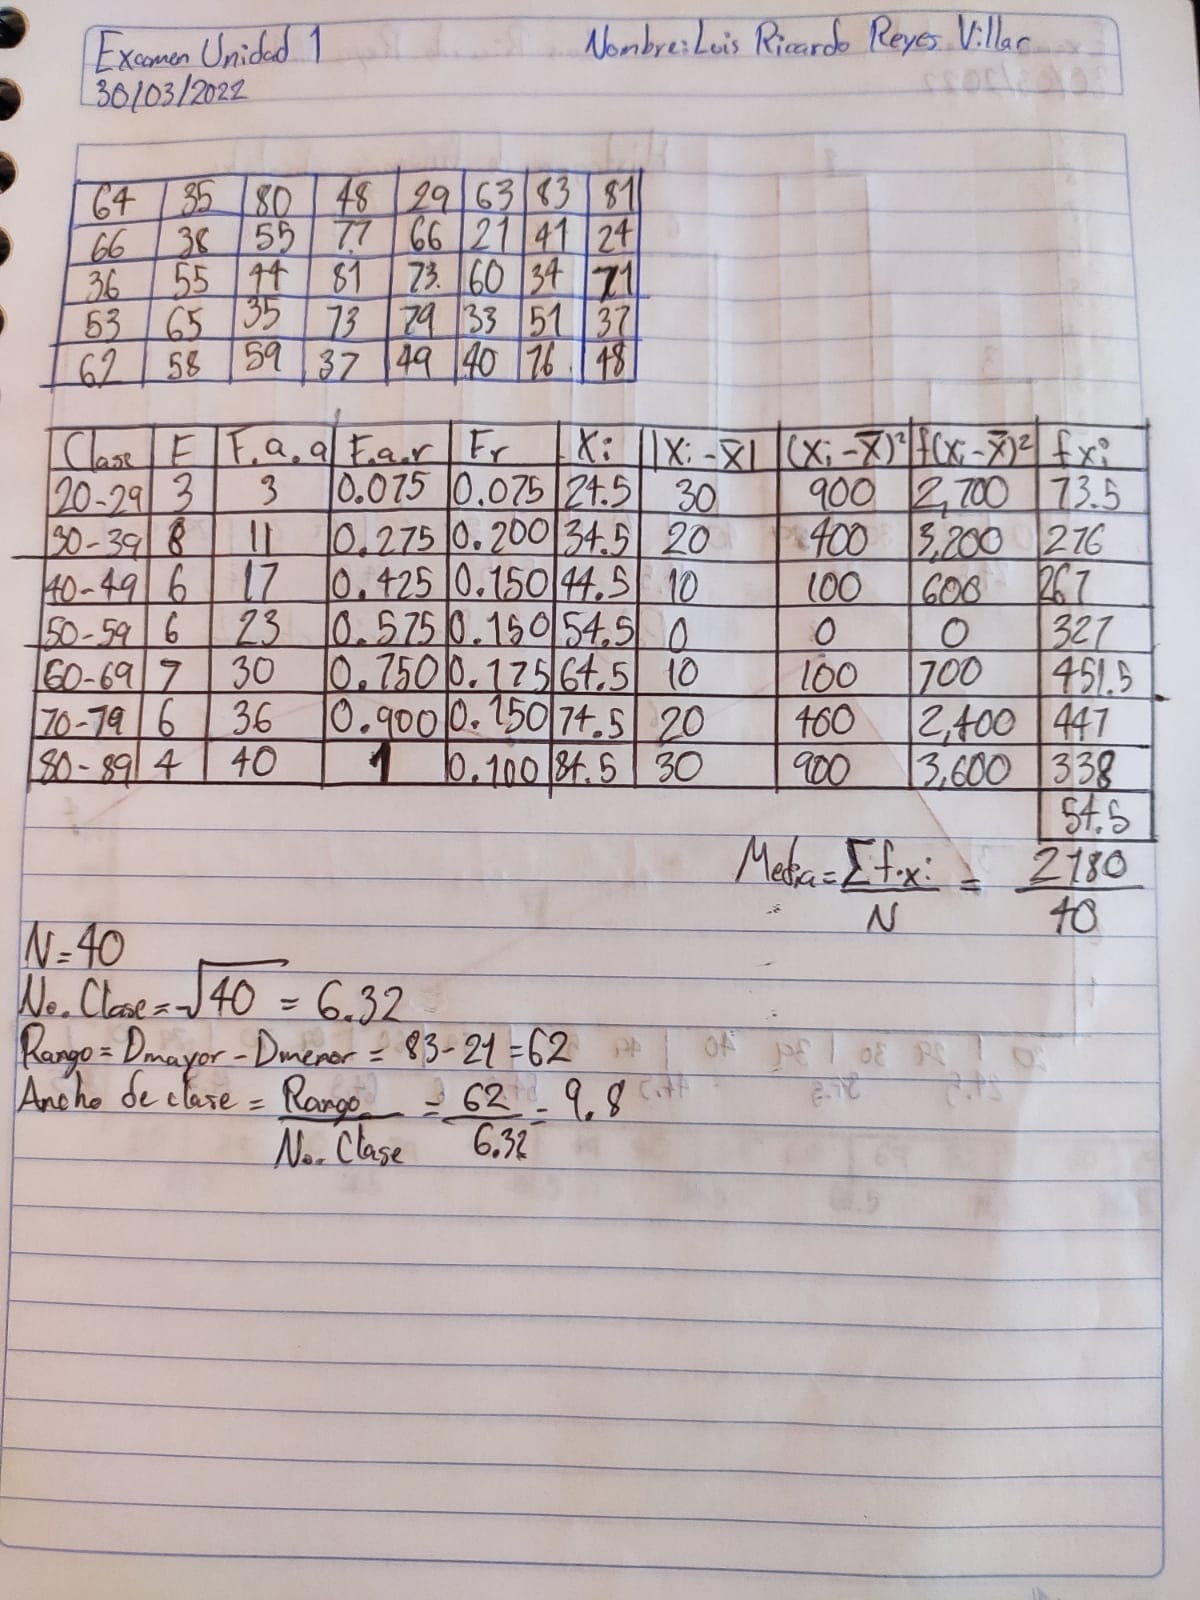 Examen Unidad 1 Nombre: Luis Ricardo Reyes Villar
30/03/2022
64 35 80 48 29 63 83 81
66 38 55 77 66 21 41 24
36 55 44 81 73 60 34 71
53 65 35 73 79 33 51 37
62 58 59 37 49 40 76 48
Clase F F.a.a F.a.r Fr Xi |Xi-X̄| (Xi-X̄)² f(Xi-X̄)² fxi
20-29 3 3 0.075 0.075 24.5 30 900 2,700 73.5
30-39 8 11 0.275 0.200 34.5 20 400 3,200 276
40-49 6 17 0.425 0.150 44.5 10 100 600 267
50-59 6 23 0.575 0.150 54.5 0 0 0 327
60-69 7 30 0.750 0.175 64.5 10 100 700 451.5
70-79 6 36 0.900 0.150 74.5 20 400 2,400 447
80-89 4 40 1 0.100 84.5 30 900 3,600 338
54.5
Media = Σf·xi / N = 2180 / 40
N=40
No. Clase = √40 = 6.32
Rango = Dmayor - Dmenor = 83-21 = 62
Ancho de clase = Rango / No. Clase = 62 / 6.32 = 9.8